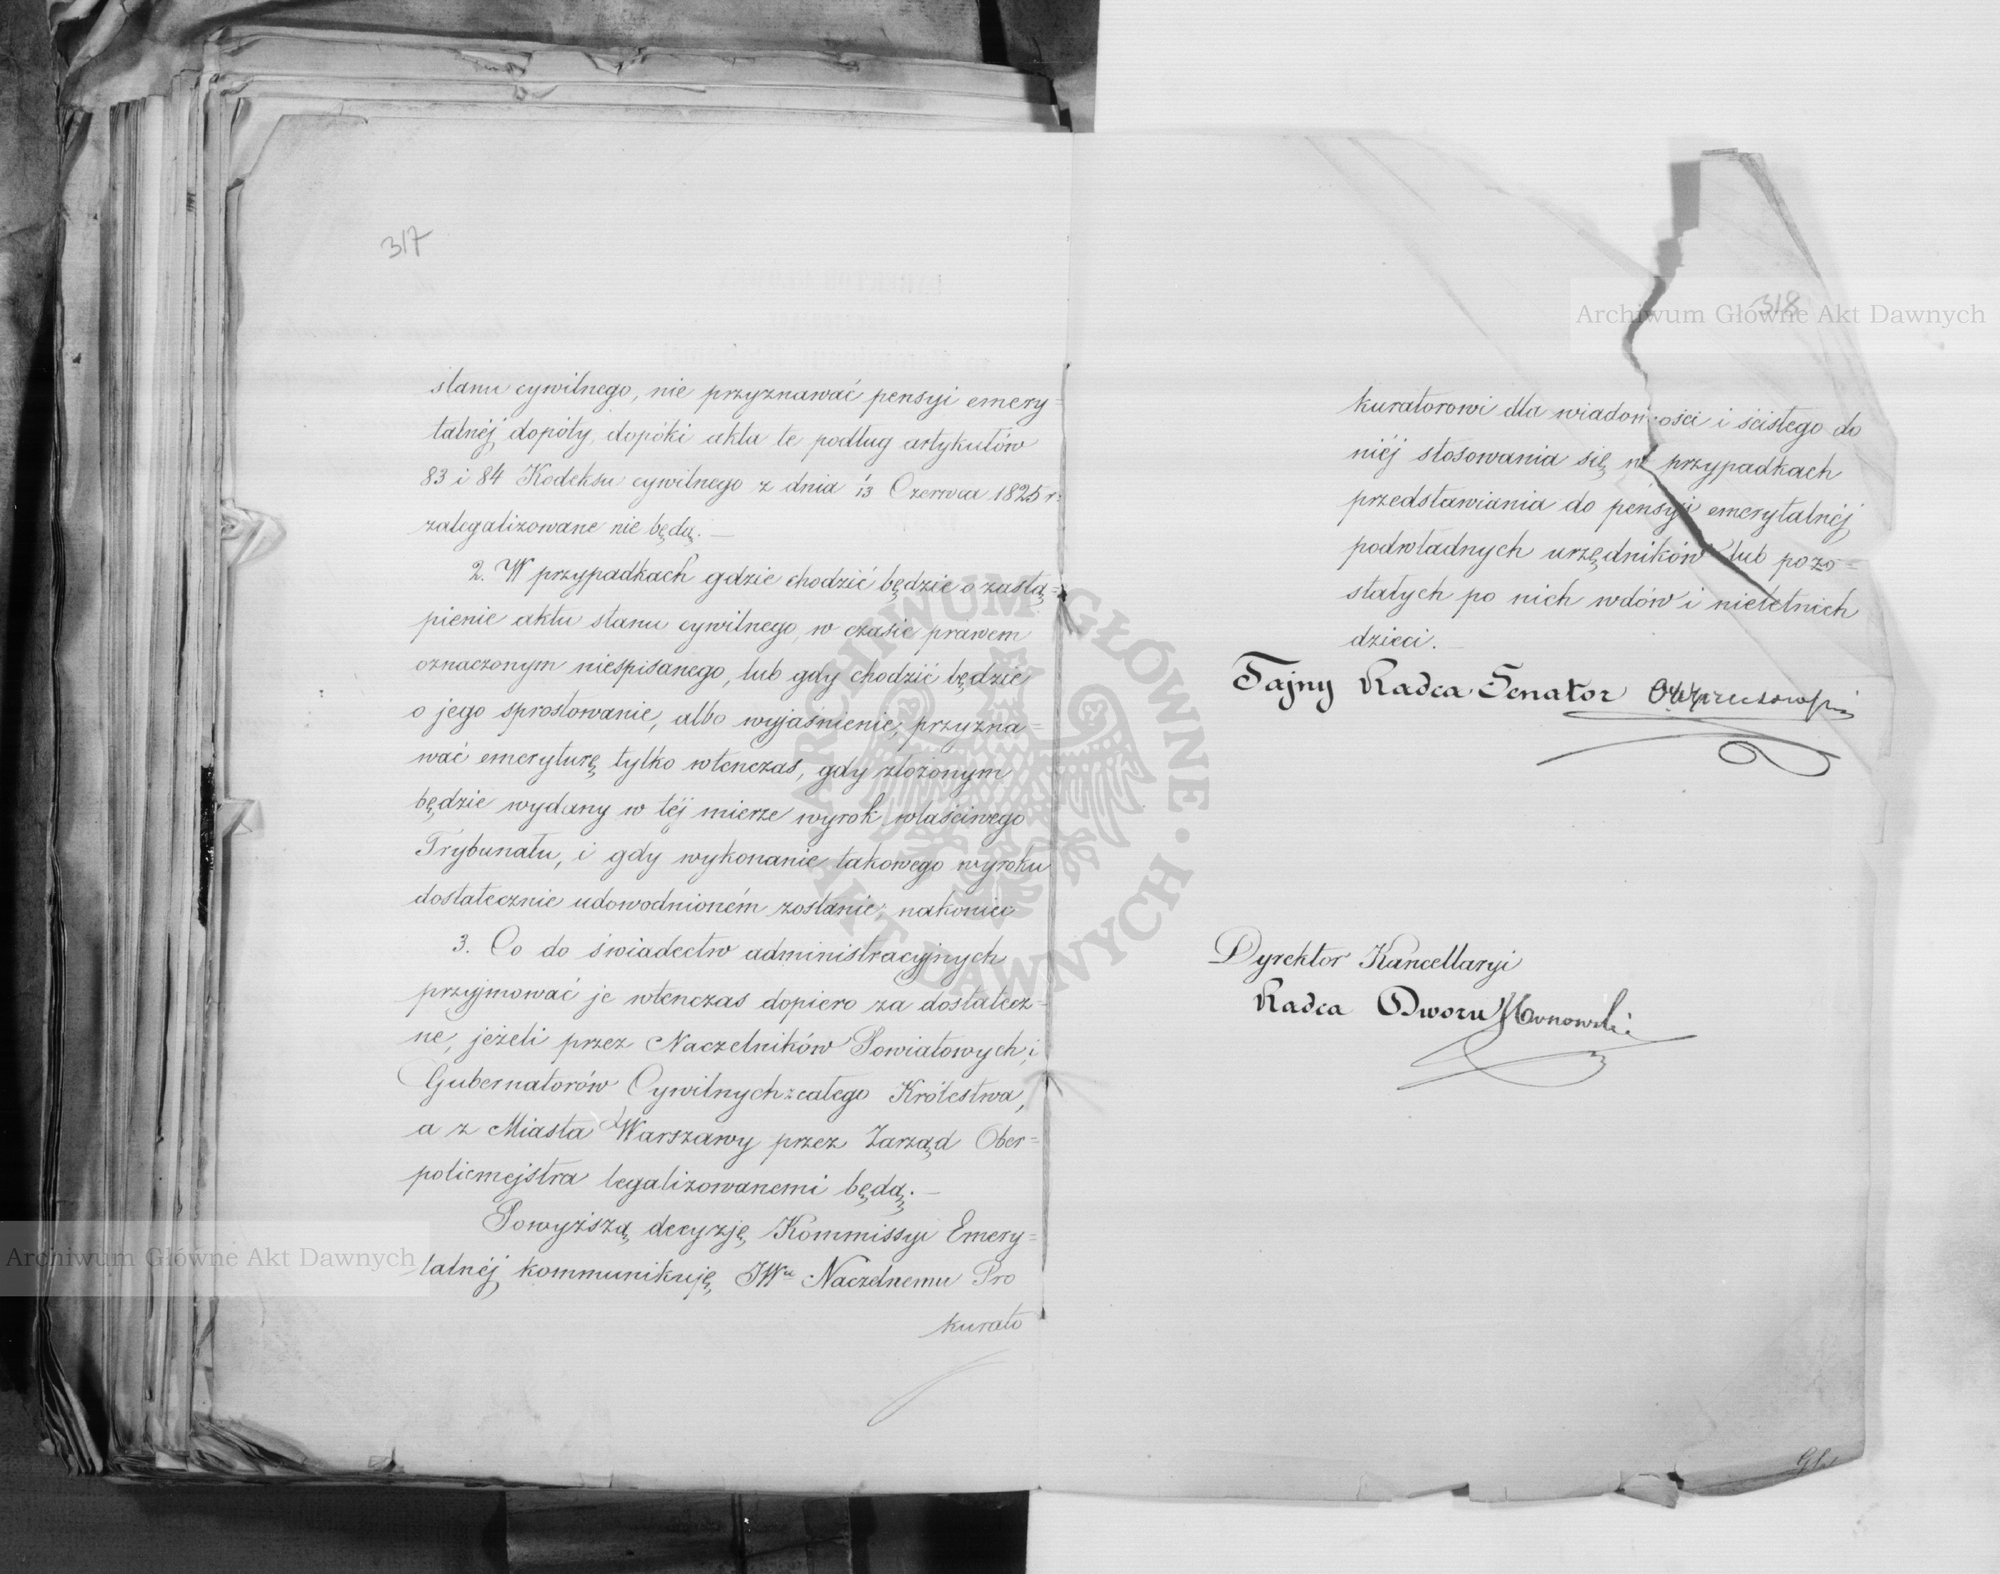 317
stanu cywilnego, nie przyznawać pensyi emery=
talnéj dopóty, dopóki akta te podług artykułów
83 i 84 Kodeksu cywilnego z dnia 1/13 Czerwca 1825 r.
zalegalizowane nie będą. —
2. W przypadkach gdzie chodzić będzie o zastą=
pienie aktu stanu cywilnego, w czasie prawem
oznaczonym niespisanego, lub gdy chodzić będzie
o jego sprostowanie, albo wyjaśnienie, przyzna=
wać emeryturę tylko wtenczas, gdy złożonym
będzie wydany w téj mierze wyrok właściwego
Trybunału, i gdy wykonanie takowego wyroku
dostatecznie udowodnioném zostanie; nakoniec
3. Co do świadectw administracyjnych
przyjmować je wtenczas dopiero za dostatecz=
ne, jeżeli przez Naczelników Powiatowych i
Gubernatorów Cywilnych z całego Królestwa,
a z Miasta Warszawy przez Zarząd Ober=
policmejstra legalizowanemi będą. —
Powyższą decyzję Kommissyi Emery=
talnéj kommunikuję JWu Naczelnemu Pro
kurato
318
kuratorowi dla wiadomości i ścisłego do
niéj stosowania się w przypadkach
przedstawiania do pensyi emerytalnéj
podwładnych urzędników lub pozo=
stałych po nich wdów i nieletnich
dzieci. —
Tajny Radca Senator
Dyrektor Kancellaryi
Radca Dworu
Archiwum Główne Akt Dawnych
Archiwum Główne Akt Dawnych
ARCHIWUM GŁÓWNE AKT DAWNYCH